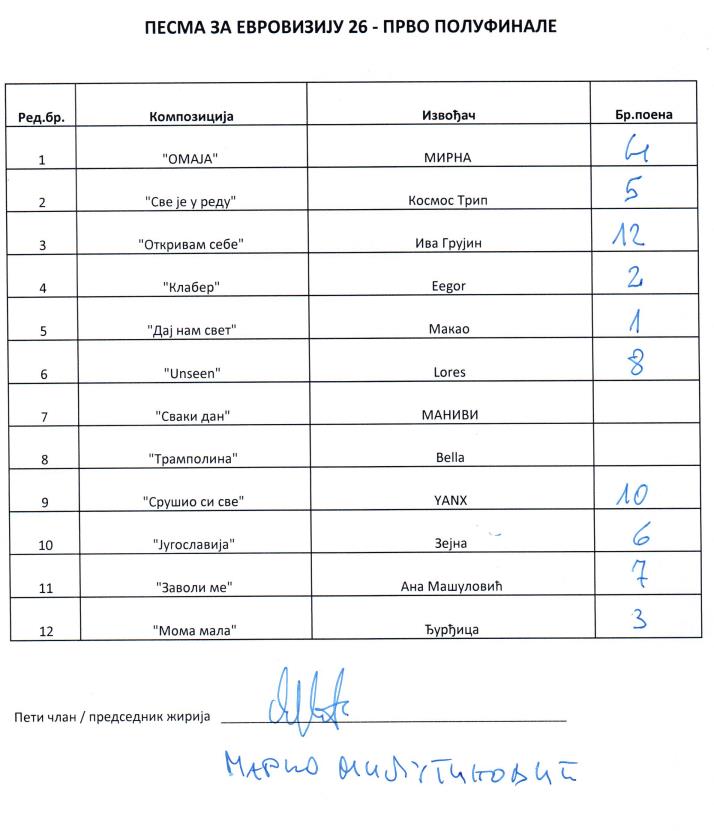 ПЕСМА ЗА ЕВРОВИЗИЈУ 26 - ПРВО ПОЛУФИНАЛЕ
Ред.бр. Композиција Извођач Бр.поена
1 "ОМАЈА" МИРНА 4
2 "Све је у реду" Космос Трип 5
3 "Откривам себе" Ива Грујин 12
4 "Клабер" Eegor 2
5 "Дај нам свет" Макао 1
6 "Unseen" Lores 8
7 "Сваки дан" МАНИВИ
8 "Трамполина" Bella
9 "Срушио си све" YANX 10
10 "Југославија" Зејна 6
11 "Заволи ме" Ана Машуловић 7
12 "Мома мала" Ђурђица 3
Пети члан / председник жирија
МАРКО МИЛУТИНОВИЋ